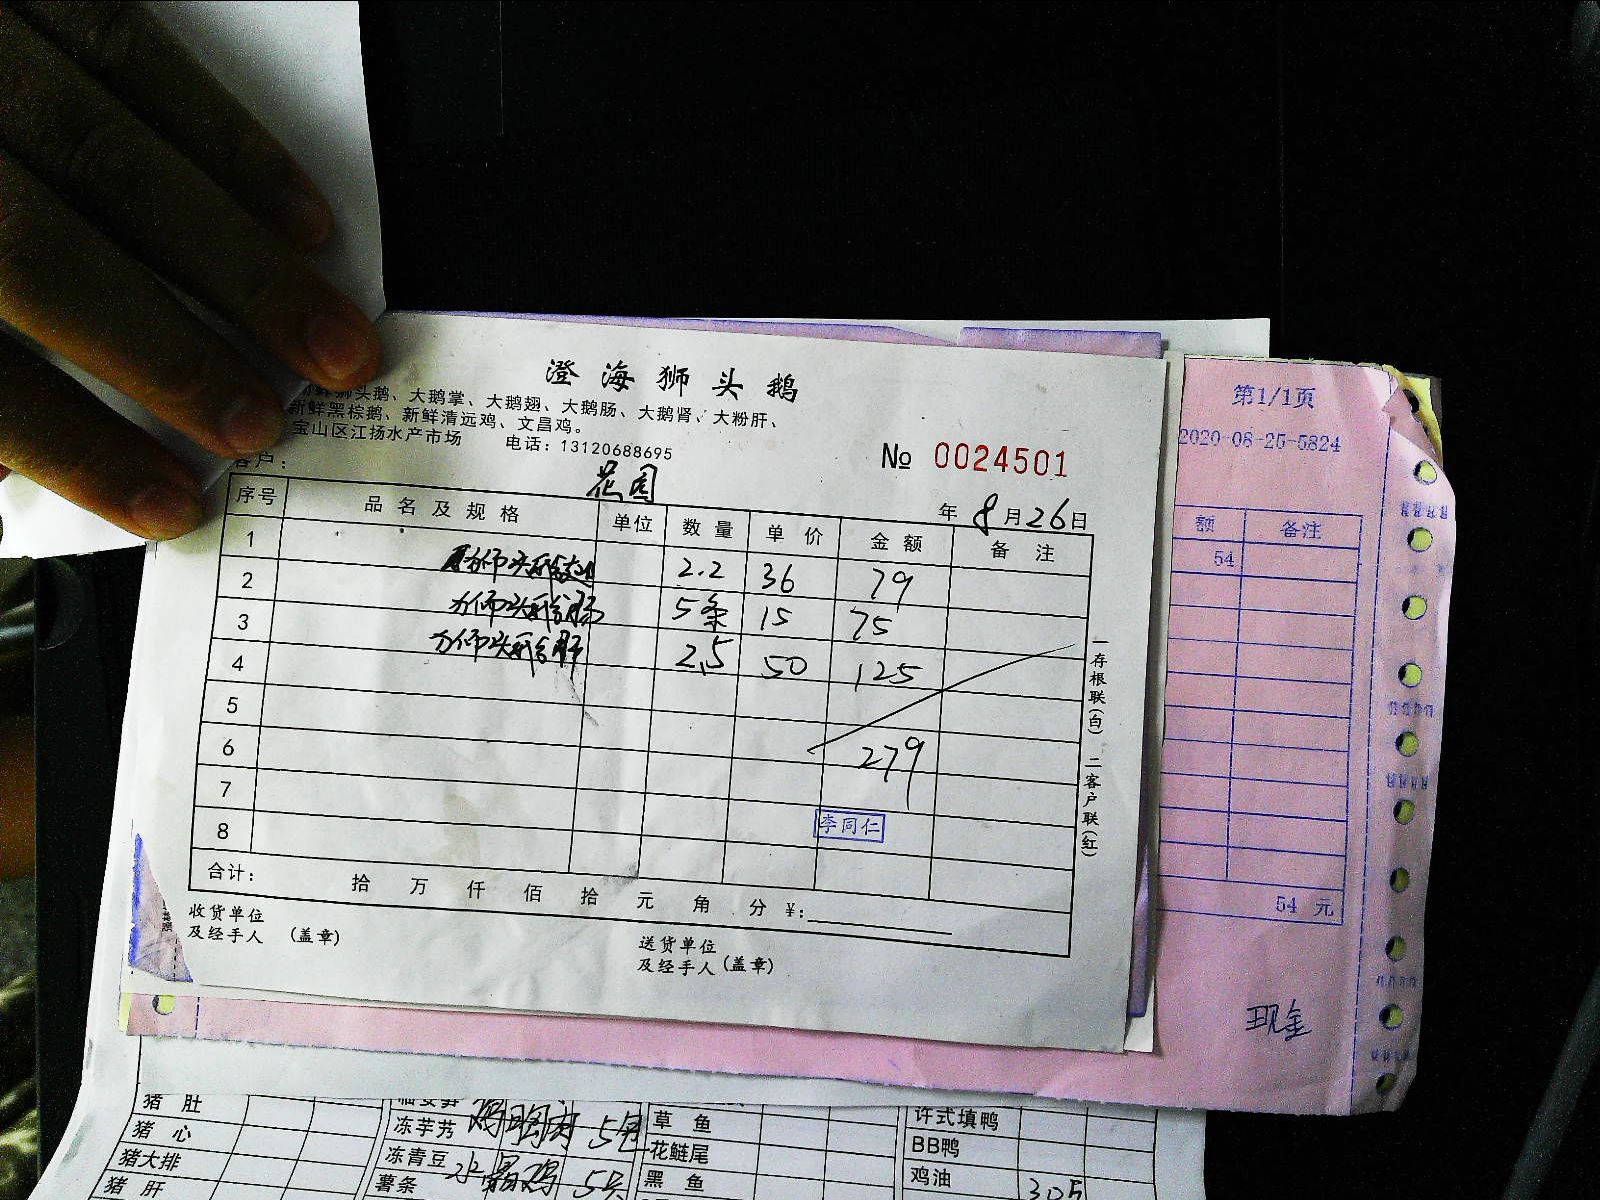 澄海狮头鹅
狮头鹅、大鹅掌、大鹅翅、大鹅肠、大鹅肾、大粉肝、
新鲜黑棕鹅、新鲜清远鸡、文昌鸡。
宝山区江扬水产市场 电话:13120688695
№ 0024501
客户: 花园
年 8月26日
序号 品名及规格 单位 数量 单价 金额 备注
1 2.2 36 79
2 5条 15 75
3 2.5 50 125
4
5
6 279
7
8 李同仁
合计: 拾 万 仟 佰 拾 元 角 分 ¥:
收货单位
及经手人 (盖章)
送货单位
及经手人(盖章)
一存根联(白) 二客户联(红)
第1/1页
2020-08-25-5824
额 备注
54
54 元
现金
猪肚 草鱼 许式填鸭
猪心 冻芋艿 5包 花鲢尾 BB鸭
猪大排 冻青豆 黑鱼 鸡油 305
猪肝 薯条